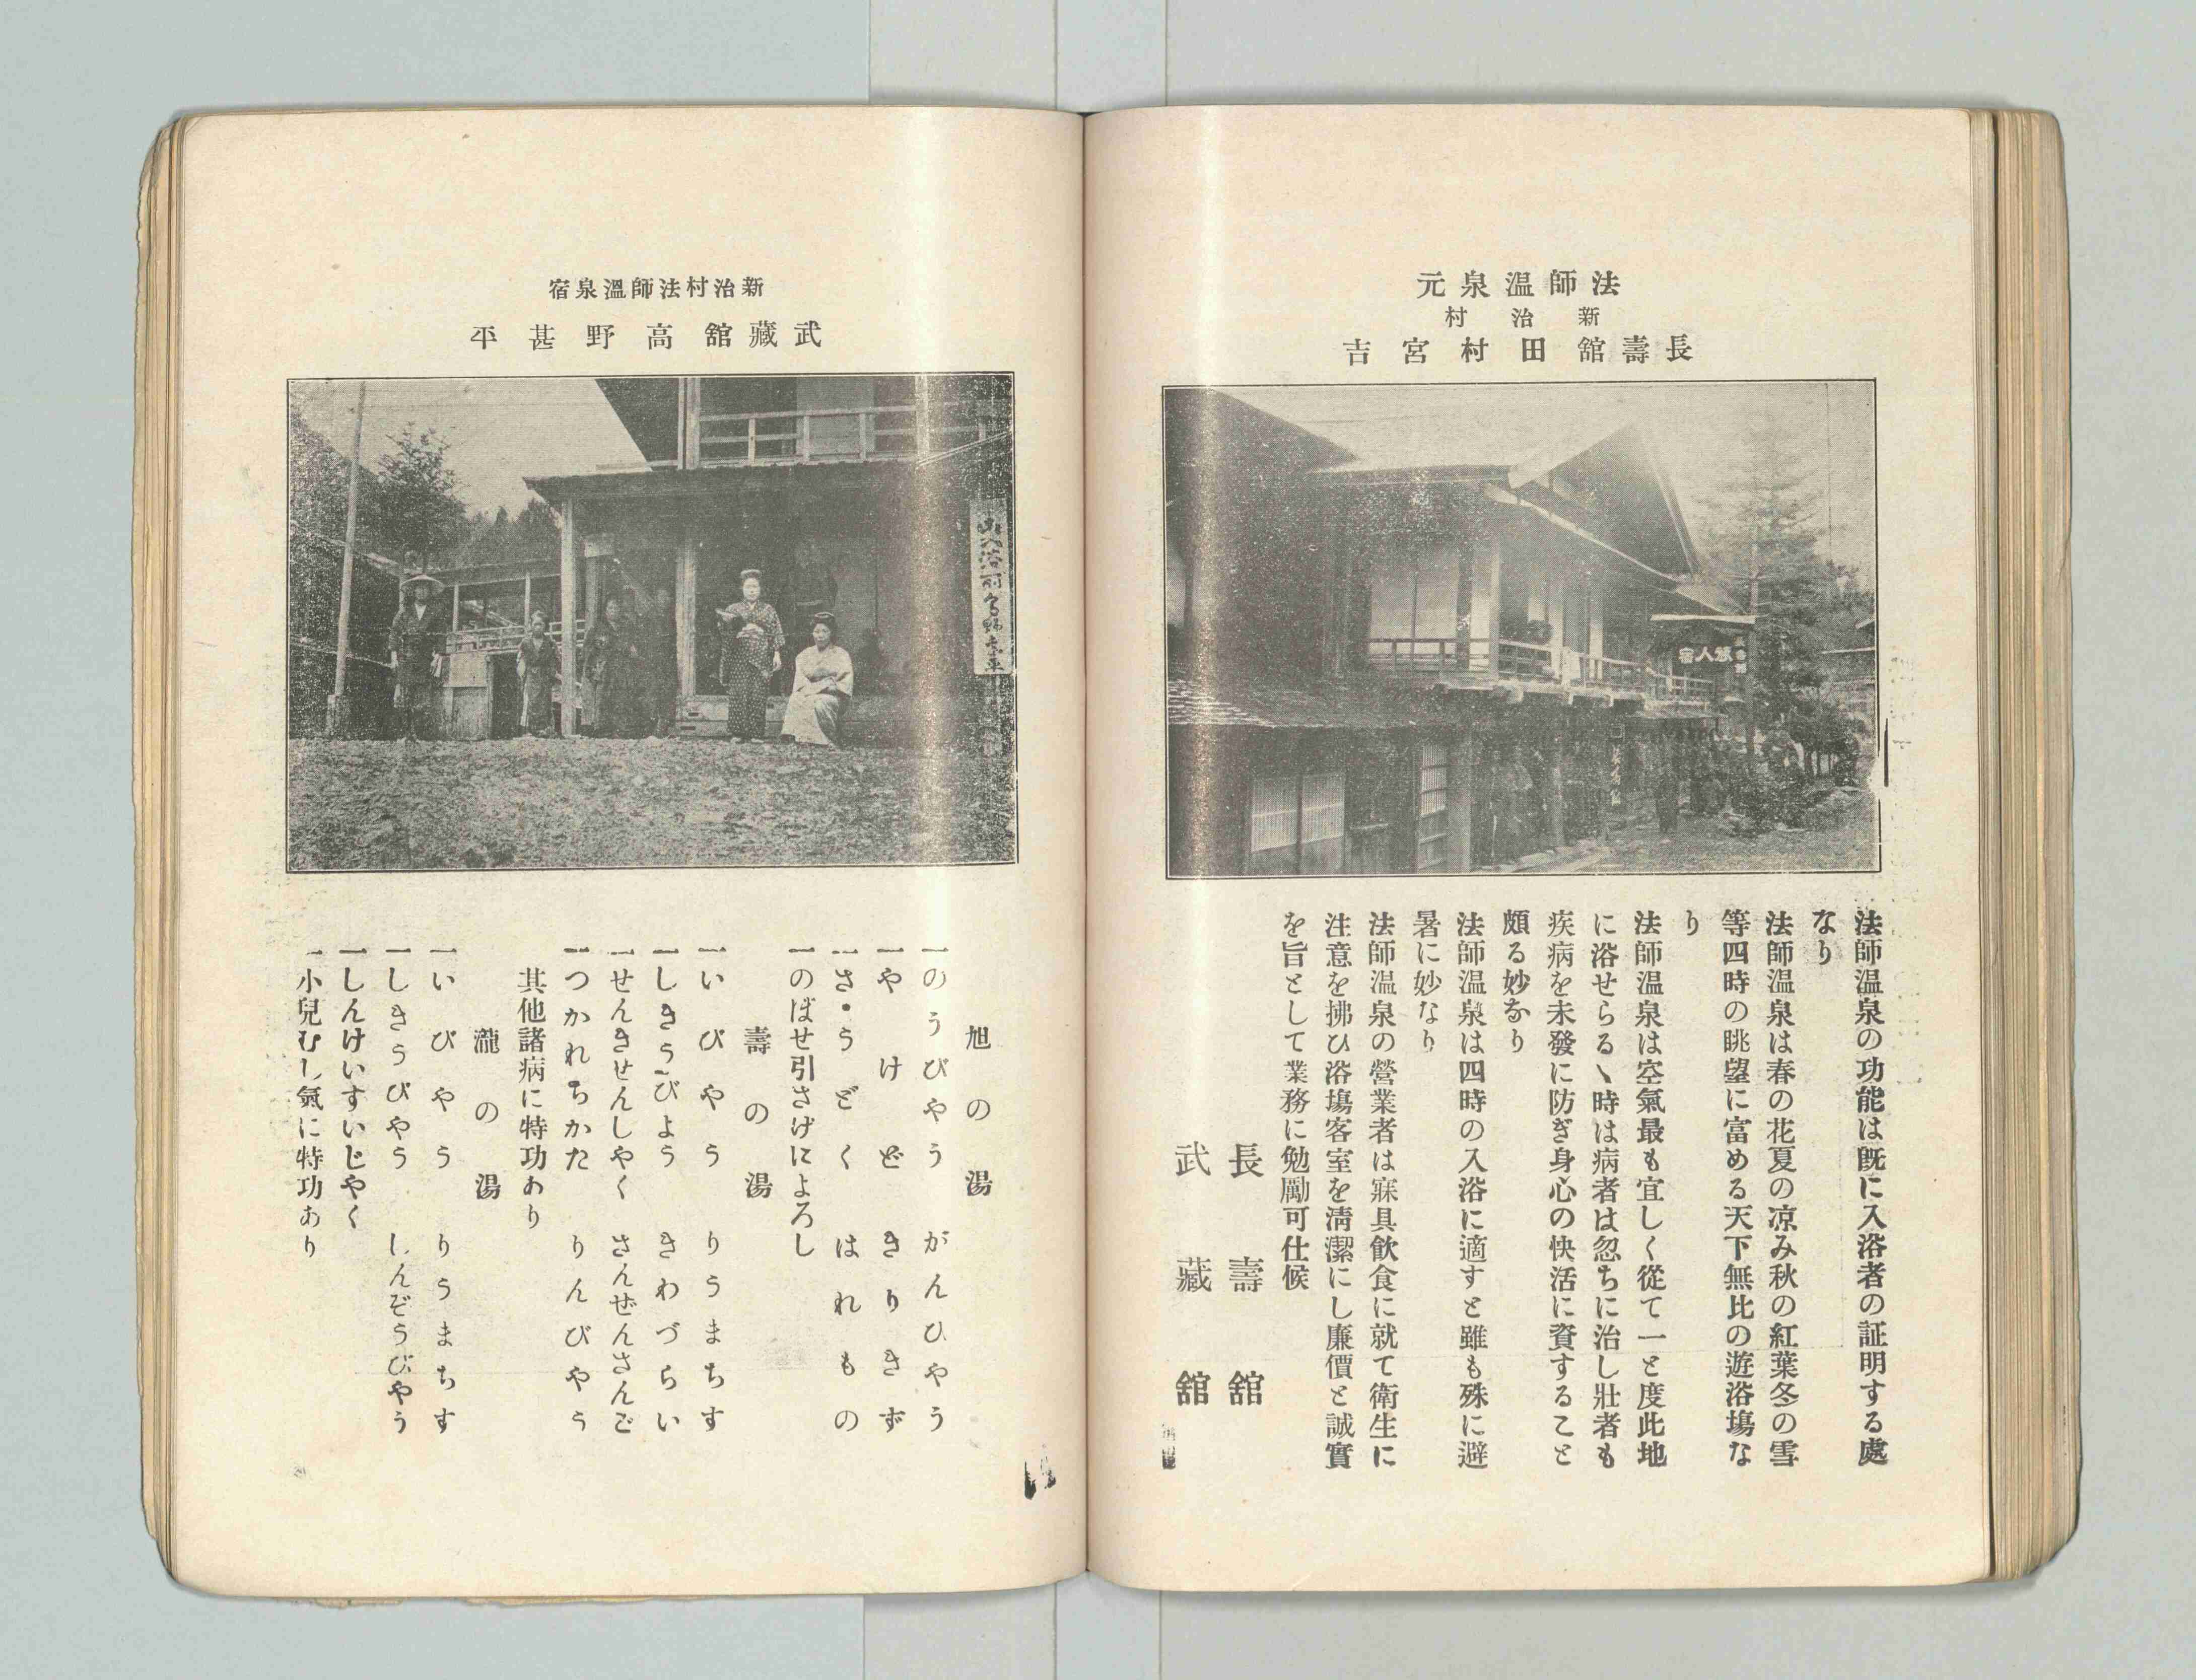 法師温泉元
新治村
長壽舘田村宮吉
旅人宿
法師温泉の功能は既に入浴者の証明する處
なり
法師温泉は春の花夏の凉み秋の紅葉冬の雪
等四時の眺望に富める天下無比の遊浴塲な
り
法師温泉は空氣最も宜しく從て一と度此地
に浴せらるヽ時は病者は忽ちに治し壯者も
疾病を未發に防ぎ身心の快活に資すること
頗る妙なり
法師温泉は四時の入浴に適すと雖も殊に避
暑に妙なり
法師温泉の營業者は寐具飮食に就て衛生に
注意を拂ひ浴塲客室を清潔にし廉價と誠實
を旨として業務に勉勵可仕候
長壽舘
武藏舘
新治村法師溫泉宿
武藏舘高野甚平
旭の湯
一のうびやう　がんびやう
一やけど　きりきず
一さうどく　はれもの
一のぼせ引さげによろし
壽の湯
一いびやう　りうまちす
一しきうびよう　きわづらい
一せんきせんしやく　さんぜんさんご
一つかれちかた　りんびやう
其他諸病に特功あり
瀧の湯
一いびやう　りうまちす
一しきうびやう　しんぞうびやう
一しんけいすいじやく
一小兒むし氣に特功あり